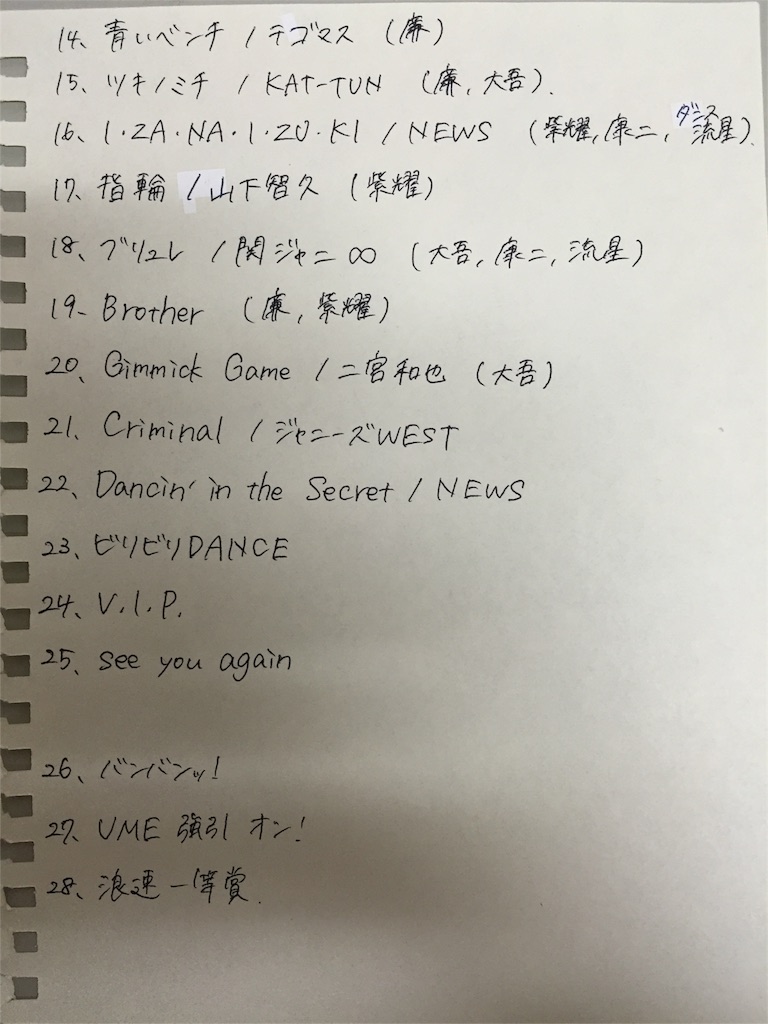 14、青いベンチ / テゴマス (廉)
15、ツキノミチ / KAT-TUN (廉, 大吾).
16、I・ZA・NA・I・ZU・KI / NEWS (紫耀, 康二, ダンス流星).
17、指輪 / 山下智久 (紫耀)
18、ブリュレ / 関ジャニ∞ (大吾, 康二, 流星)
19、Brother (廉, 紫耀)
20、Gimmick Game / 二宮和也 (大吾)
21、Criminal / ジャニーズWEST
22、Dancin' in the Secret / NEWS
23、ビリビリDANCE
24、V.I.P.
25、see you again
26、バンバンッ!
27、UME 強引 オン!
28、浪速一等賞.